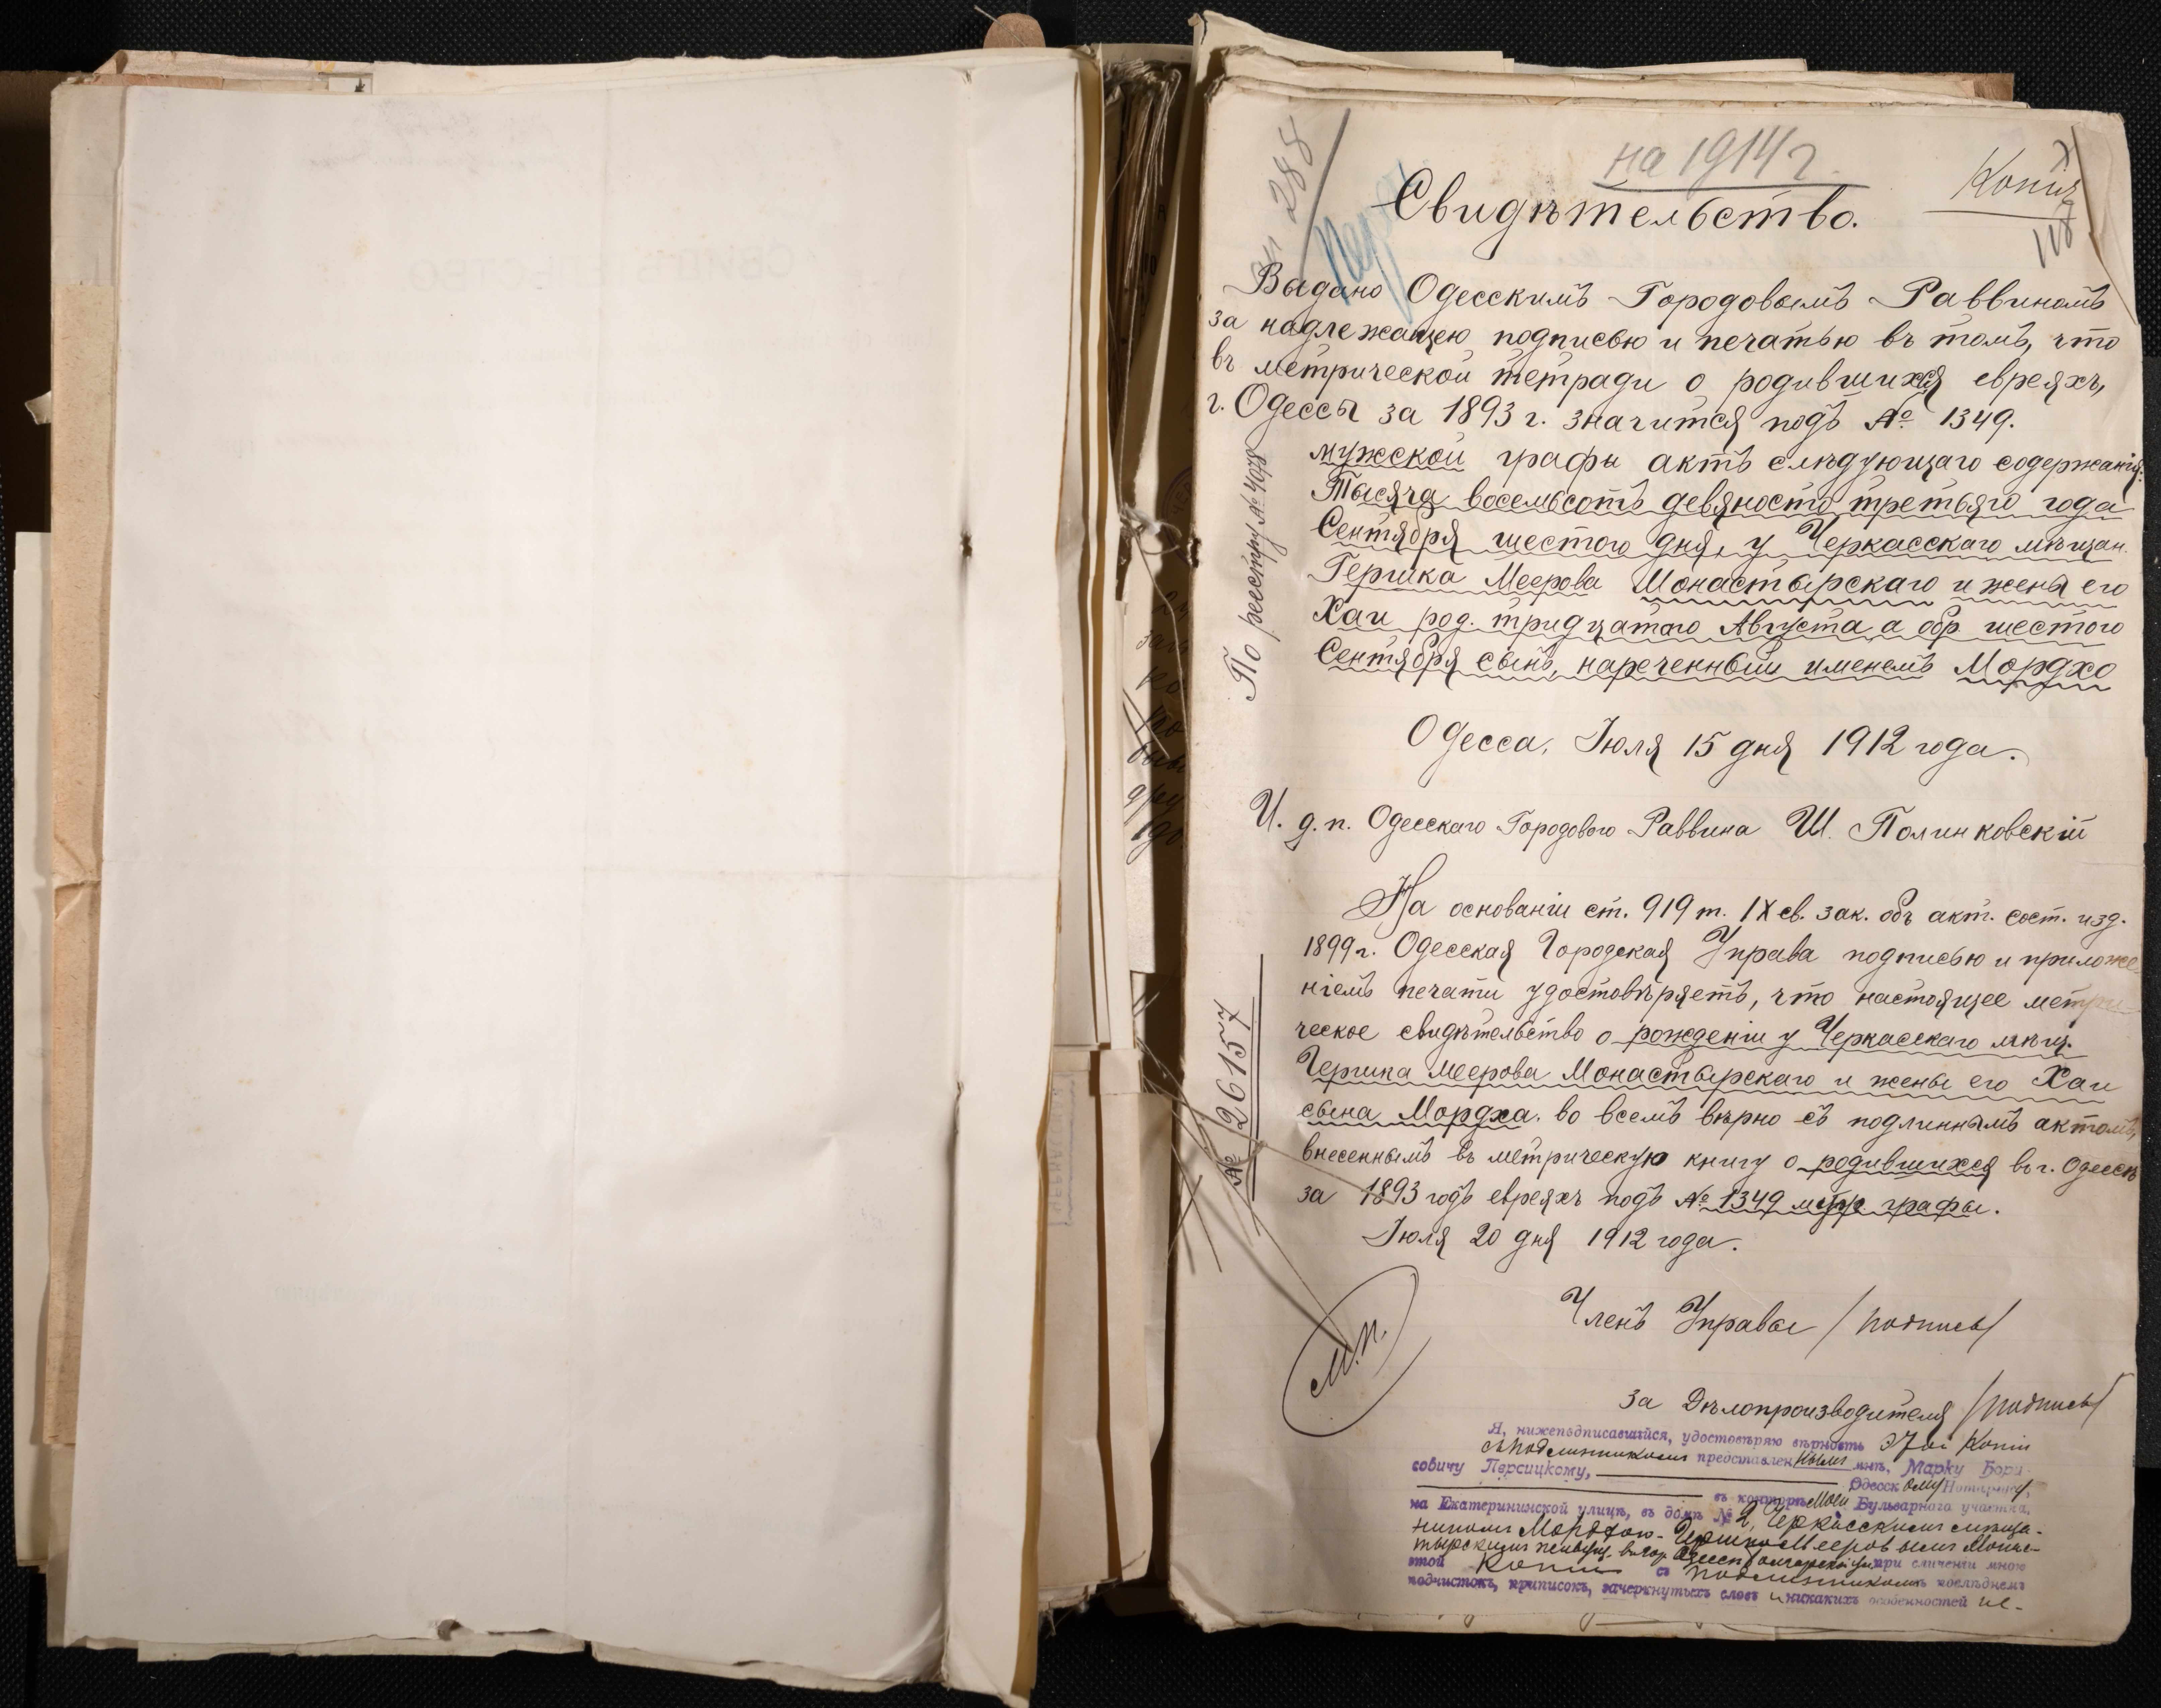 на 1914 г.
Копія
118
288
Свидѣтельство.
Выдано Одесскимъ Городовымъ Раввиномъ
за надлежащею подписью и печатью въ томъ, что
въ метрической тетради о родившихся евреяхъ,
г. Одессы за 1893 г. значится подъ № 1349.
мужской графы актъ слѣдующаго содержанія:
Тысяча восемьсотъ девяносто третьяго года
Сентября шестого дня, у Черкасскаго мѣщан.
Гершка Меерова Монастырскаго и жены его
Хаи род. тридцатаго Августа, а обр. шестого
Сентября сынъ, нареченный именемъ Мордхо
По реестру № 4078
Одесса, Іюля 15 дня 1912 года.
И. д. п. Одесскаго Городового Раввина Ш. Полинковскій
На основаніи ст. 919 т. IX св. зак. объ акт. сост. изд.
1899 г. Одесская Городская Управа подписью и приложе
ніемъ печати удостовѣряетъ, что настоящее метри
ческое свидѣтельство о рожденіи у Черкасскаго мѣщ.
Гершка Меерова Монастырскаго и жены его Хаи
сына Мордха. во всемъ вѣрно съ подлиннымъ актомъ,
внесеннымъ въ метрическую книгу о родившихся въ г. Одессѣ
за 1893 годъ евреяхъ подъ № 1349 муж. графы.
№ 26157
Іюля 20 дня 1912 года.
М.П.
Членъ Управы /подпись/
За Дѣлопроизводителя /подпись/
Я, нижеподписавшійся, удостовѣряю вѣрность этой копіи
съ подлинникомъ представленнымъ мнѣ, Марку Бори-
совичу Персицкому, Одесскому Нотаріусу,
въ конторѣ моей Бульварнаго участка,
на Екатерининской улицѣ, въ домѣ № 2, Черкасскимъ мѣща-
ниномъ Мордхою-Гершко Мееровымъ Монас-
тырскимъ, живущ. въ гор. Одессѣ при сличеніи мною
этой копіи съ подлинникомъ въ послѣднемъ
подчистокъ, приписокъ, зачеркнутыхъ словъ и никакихъ особенностей не-